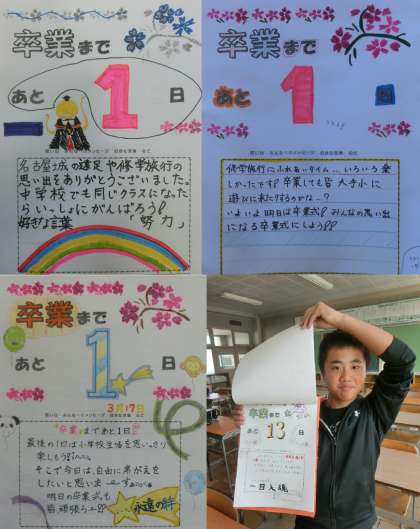 卒業まで
あと 1 日
名古屋城の遠足や修学旅行の
思い出をありがとうございました。
中学校でも同じクラスになった
らいっしょにがんばろう!!
好きな言葉 「努力」
卒業まで
あと 1 日
修学旅行にふれあいタイム…いろいろ楽
しかったです!!卒業しても皆 大手小に
遊びに来たりするのかな…?
いよいよ明日は卒業式!みんなの思い出
になる卒業式にしよう!!
卒業まで
あと 1 日
3月17日
卒業まであと1日
最後の1日は小学校生活を思いっきり
そこで今日は、自由に席がえを
したいと思いま
明日の卒業式も
皆頑張ろー!!
永遠の絆
卒業まで
あと 13 日
一日入魂